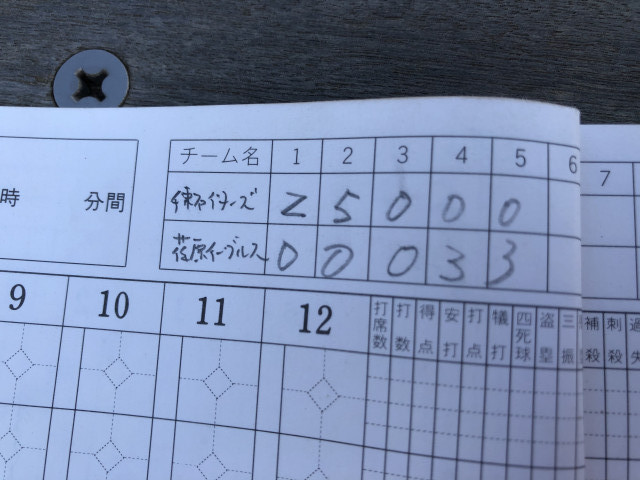 チーム名 1 2 3 4 5 6 7
ファイターズ 2 5 0 0 0
荏原イーグルス 0 0 0 3 3
時 分間
9 10 11 12 打席数 打数 得点 安打 打点 犠打 四死球 盗塁 三振 補殺 刺殺 過失